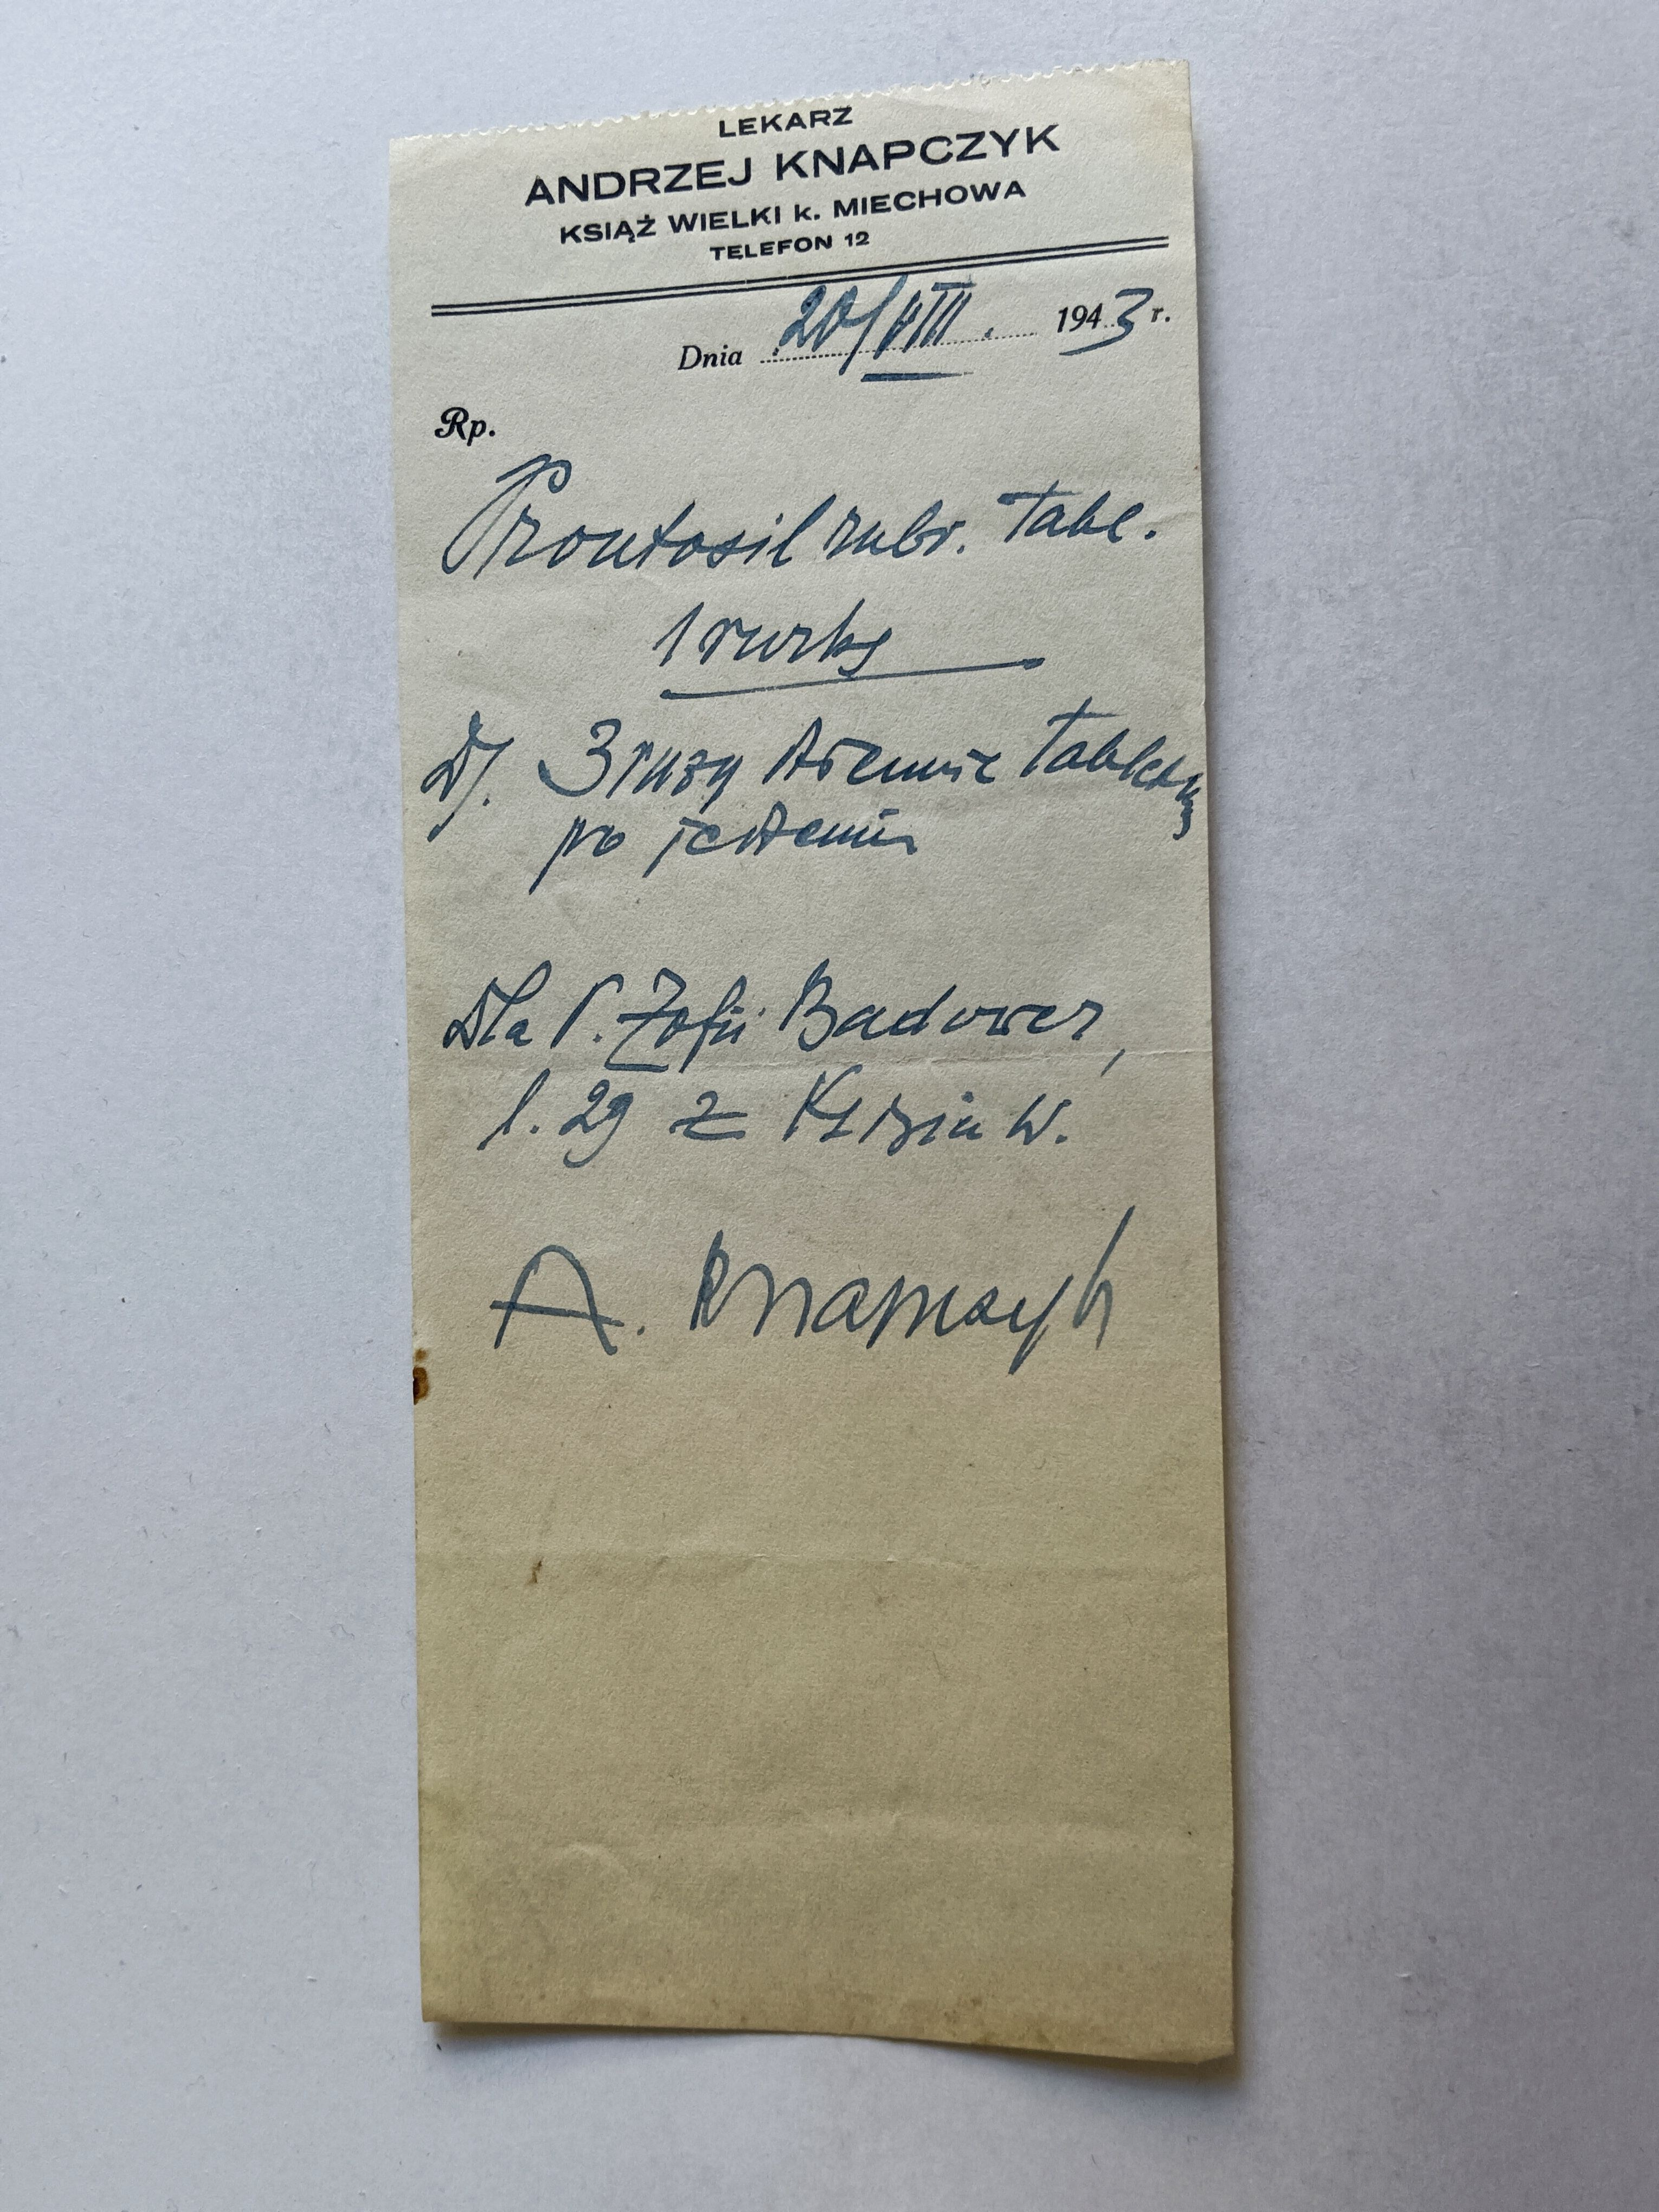 LEKARZ
ANDRZEJ KNAPCZYK
KSIĄŻ WIELKI k. MIECHOWA
TELEFON 12
Dnia 20/VIII. 1943 r.
Rp.
Prontosil rubr. Tabl.
1 rurkę
DS. 3 razy dziennie tabletkę
po jedzeniu
Dla P. Zofii Badower,
l. 29 z Książa W.
A. Knapczyk